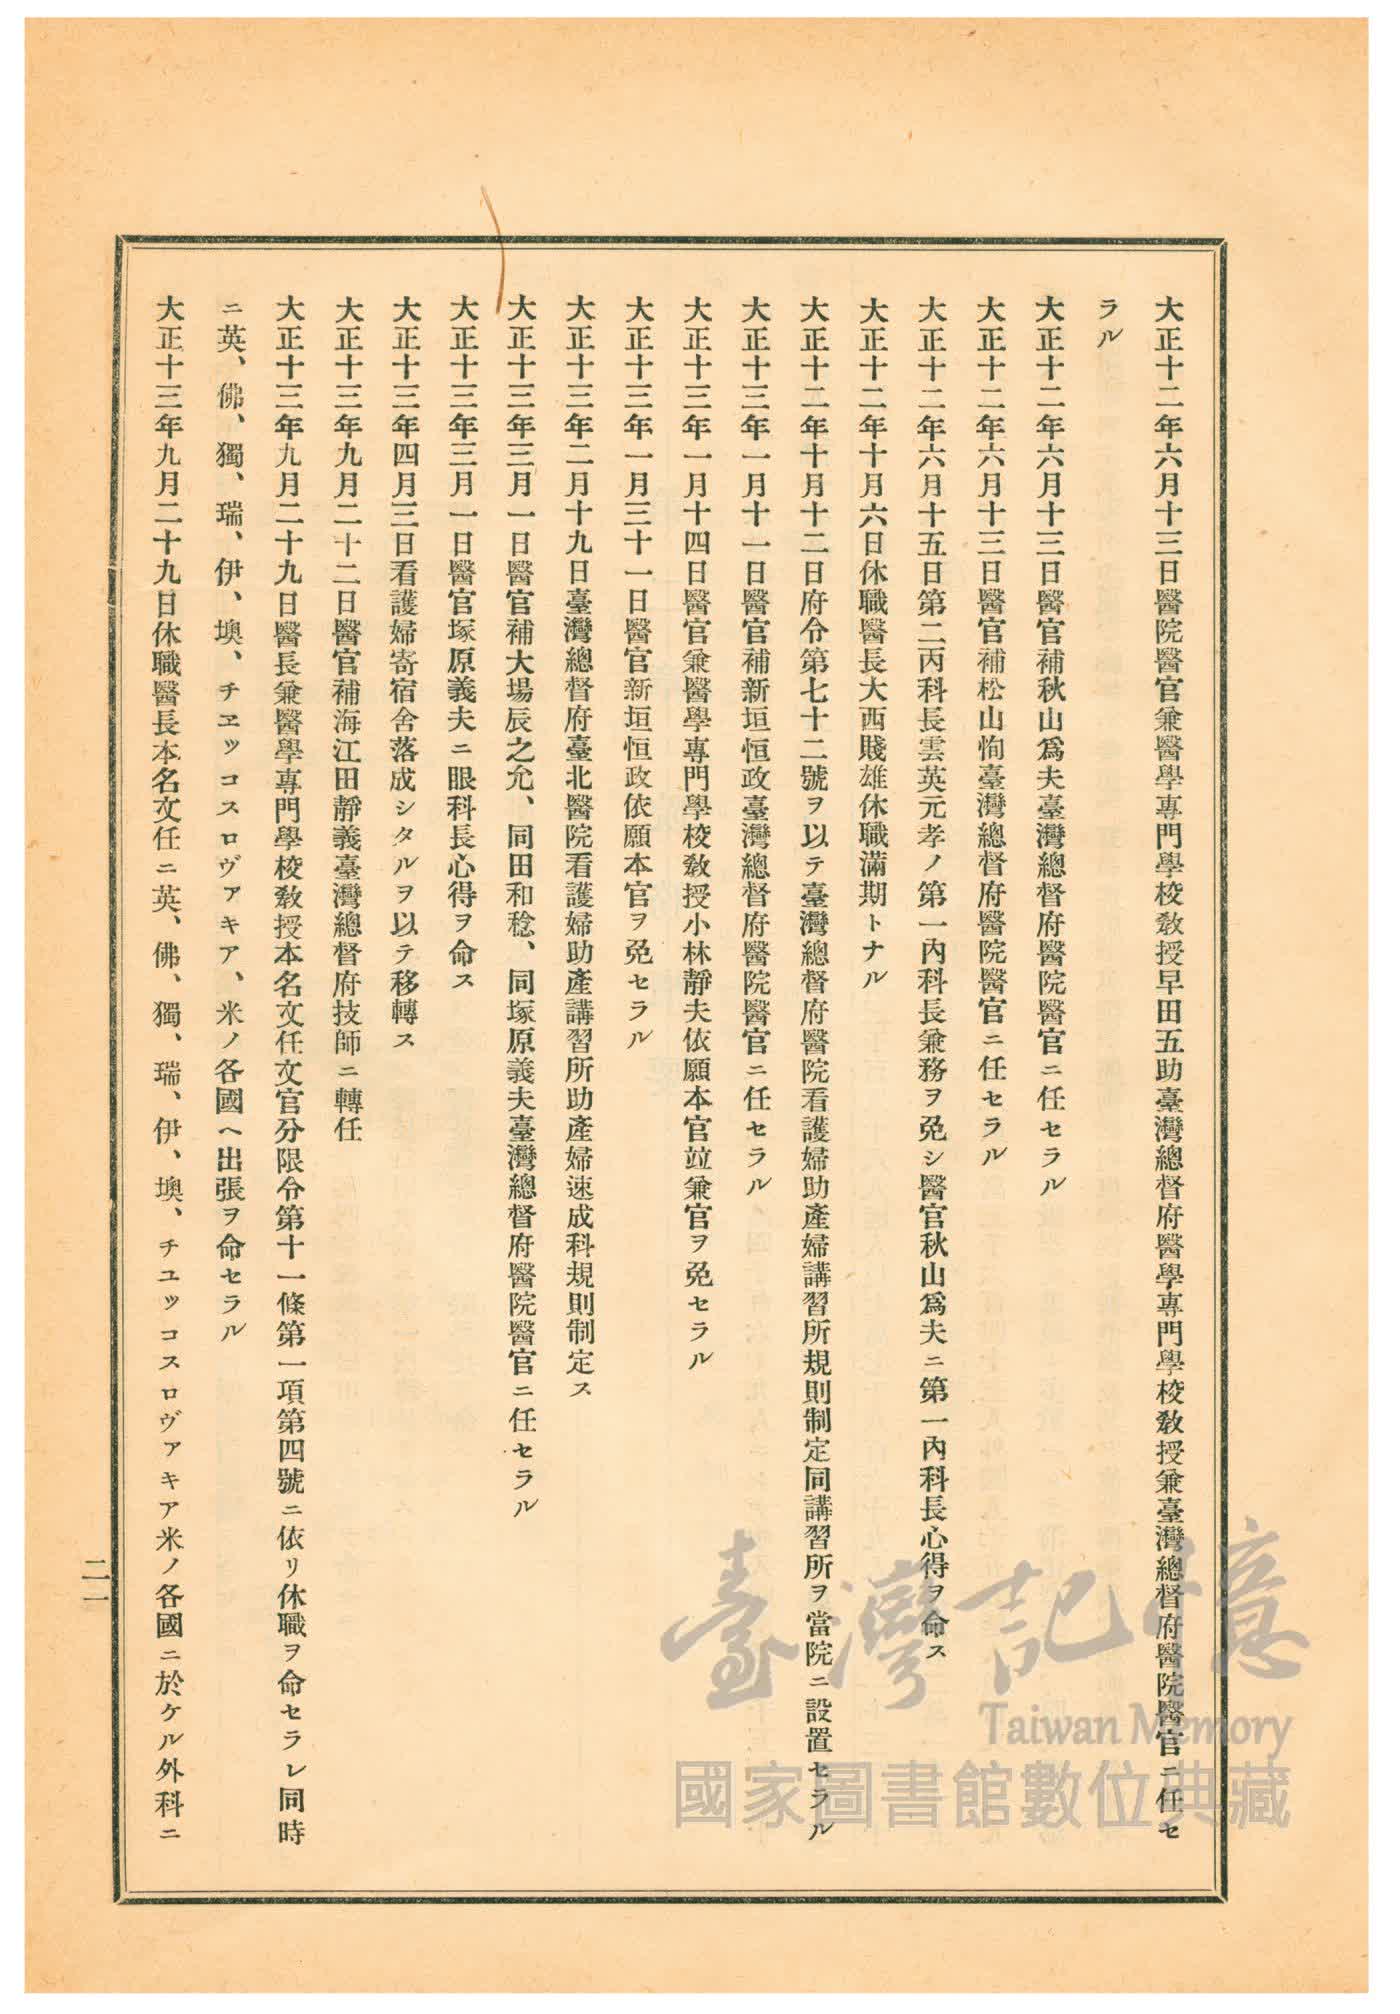 大正十二年六月十三日醫院醫官兼醫學專門學校敎授早田五助臺灣總督府醫學專門學校敎授兼臺灣總督府醫院醫官ニ任セ
ラル
大正十二年六月十三日醫官補秋山爲夫臺灣總督府醫院醫官ニ任セラル
大正十二年六月十三日醫官補松山恂臺灣總督府醫院醫官ニ任セラル
大正十二年六月十五日第二丙科長雲英元孝ノ第一內科長兼務ヲ免シ醫官秋山爲夫ニ第一內科長心得ヲ命ス
大正十二年十月六日休職醫長大西賤雄休職滿期トナル
大正十二年十月十二日府令第七十二號ヲ以テ臺灣總督府醫院看護婦助產婦講習所規則制定同講習所ヲ當院ニ設置セラル
大正十三年一月十一日醫官補新垣恒政臺灣總督府醫院醫官ニ任セラル
大正十三年一月十四日醫官兼醫學專門學校敎授小林靜夫依願本官竝兼官ヲ免セラル
大正十三年一月三十一日醫官新垣恒政依願本官ヲ免セラル
大正十三年二月十九日臺灣總督府臺北醫院看護婦助產講習所助產婦速成科規則制定ス
大正十三年三月一日醫官補大場辰之允、同田和稔、同塚原義夫臺灣總督府醫院醫官ニ任セラル
大正十三年三月一日醫官塚原義夫ニ眼科長心得ヲ命ス
大正十三年四月三日看護婦寄宿舍落成シタルヲ以テ移轉ス
大正十三年九月二十二日醫官補海江田靜義臺灣總督府技師ニ轉任
大正十三年九月二十九日醫長兼醫學專門學校敎授本名文任文官分限令第十一條第一項第四號ニ依リ休職ヲ命セラレ同時
ニ英、佛、獨、瑞、伊、墺、チヱッコスロヴァキア、米ノ各國ヘ出張ヲ命セラル
大正十三年九月二十九日休職醫長本名文任ニ英、佛、獨、瑞、伊、墺、チユッコスロヴァキア米ノ各國ニ於ケル外科ニ
二一
臺灣記憶
Taiwan Memory
國家圖書館數位典藏